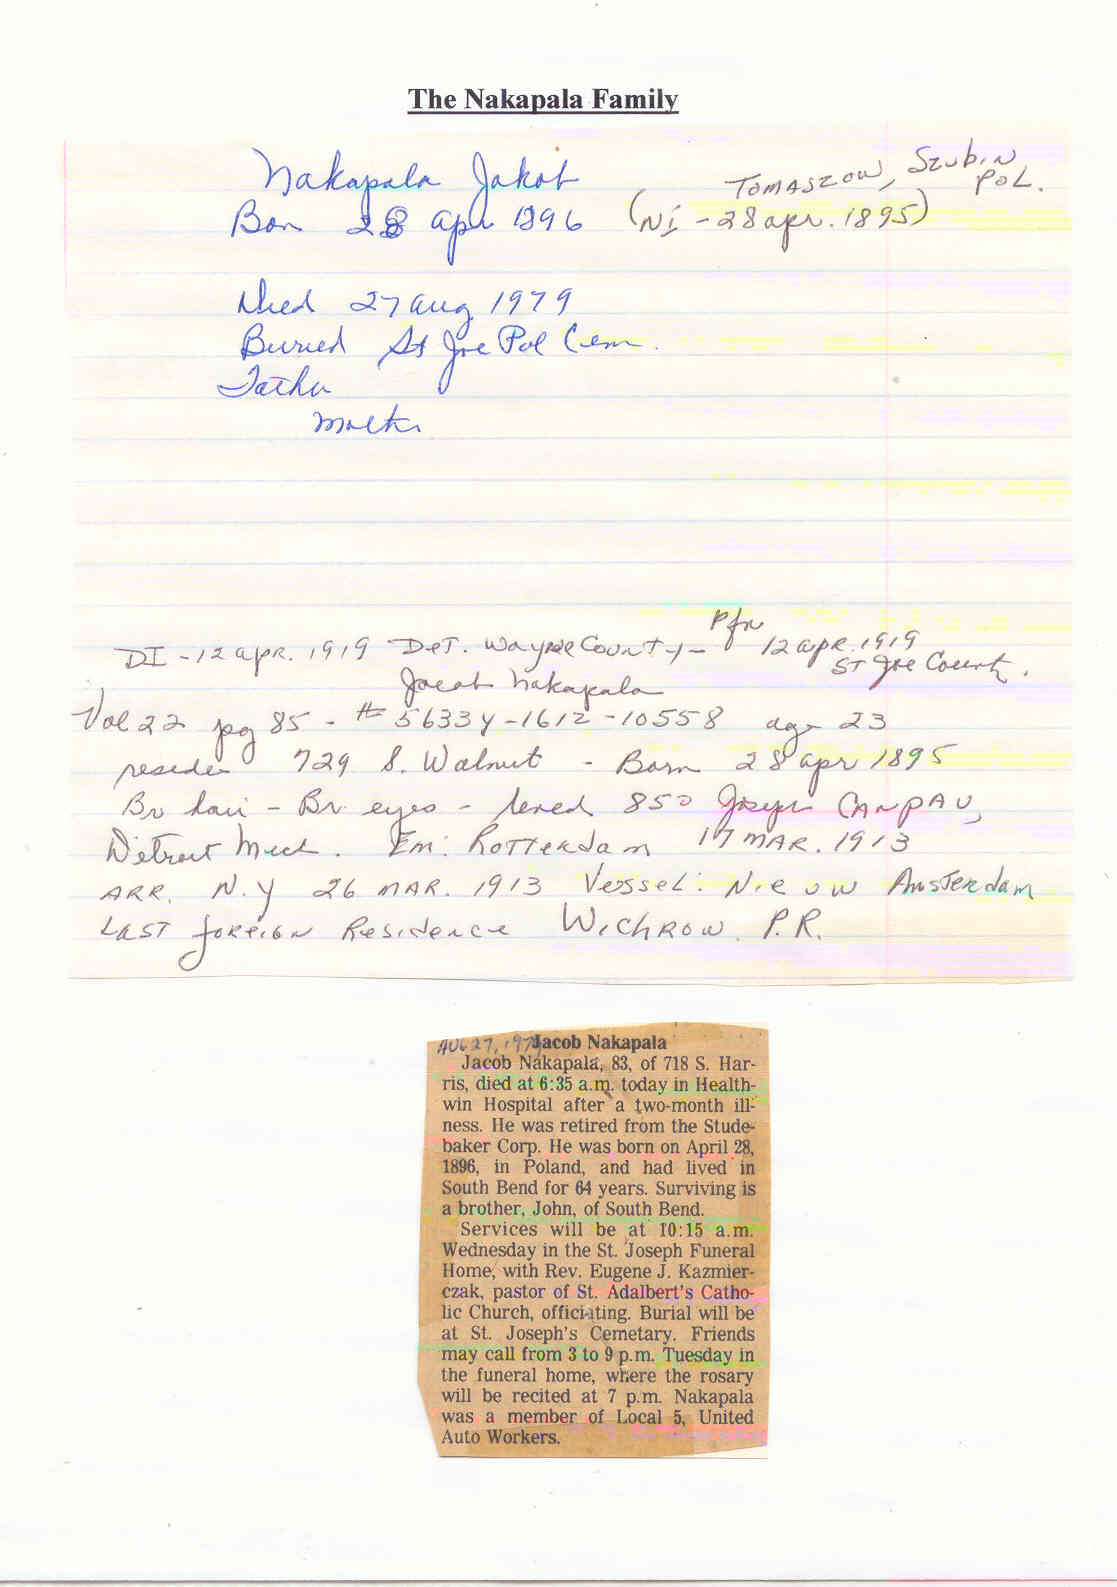 The Nakapala Family
Nakapala Jakob
Tomaszow, Szubin,
Pol.
Born 28 apr 1896 (NI - 28 apr. 1895)
Died 27 aug 1979
Buried St Joe Pol Cem.
Father
Mother
DI - 12 apr. 1919 Det. Wayne County -
12 apr. 1919
St Joe County.
Jacob Nakapala
Vol 22 pg 85 - # 56334-1612-10558 age 23
reside 729 S. Walnut - Born 28 apr 1895
Br hair - Br eyes - lived 850 Joseph CAMPAU,
Detroit Mich. Em: Rotterdam 17 MAR. 1913
ARR. N.Y 26 MAR. 1913 Vessel: Nieuw Amsterdam
LAST foreign Residence Wichrow P.R.
AUG 27, 1979
Jacob Nakapala
Jacob Nakapala, 83, of 718 S. Har-
ris, died at 6:35 a.m. today in Health-
win Hospital after a two-month ill-
ness. He was retired from the Stude-
baker Corp. He was born on April 28,
1896, in Poland, and had lived in
South Bend for 64 years. Surviving is
a brother, John, of South Bend.
Services will be at 10:15 a.m.
Wednesday in the St. Joseph Funeral
Home, with Rev. Eugene J. Kazmier-
czak, pastor of St. Adalbert's Catho-
lic Church, officiating. Burial will be
at St. Joseph's Cemetary. Friends
may call from 3 to 9 p.m. Tuesday in
the funeral home, where the rosary
will be recited at 7 p.m. Nakapala
was a member of Local 5, United
Auto Workers.